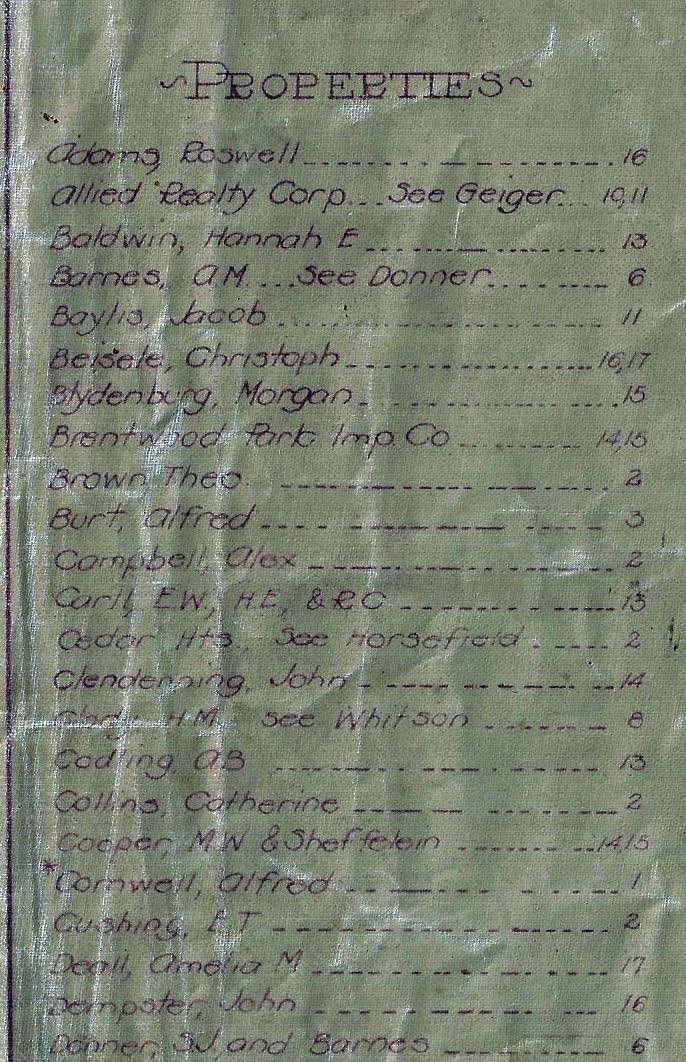 ~PROPERTIES~
Adams, Roswell 16
Allied Realty Corp...See Geiger... 10,11
Baldwin, Hannah E 13
Barnes, A.M....See Donner 6
Baylis, Jacob 11
Beisele, Christoph 16,17
Blydenburg, Morgan 15
Brentwood Park Imp. Co 14,15
Brown Theo. 2
Burt, Alfred 3
Campbell, Alex 2
Carll, E.W., H.E., & R C 13
Cedar Hts., See Horsefield 2
Clendenning, John 14
H.M. See Whitson 8
Codling, A.B 13
Collins, Catherine 2
Cooper, M.W & Sheffelein 14,15
*Cornwell, Alfred 1
Cushing, E T 2
Deall, Amelia M 17
Dempster, John 16
Donner, S.J. and Barnes 6